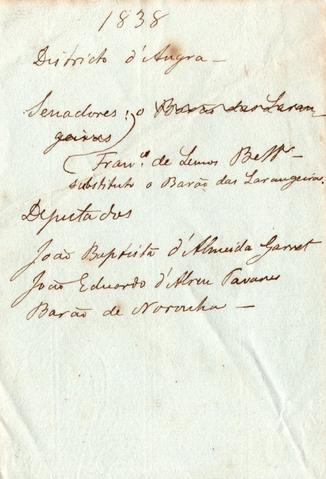 1838
Districto d'Angra —
Senadores: o Barão das Laran-
geiras
Fran.co de Lemos Bett.
substituto o Barão das Larangeiras
Deputados
João Baptista d'Almeida Garret
João Eduardo d'Abreu Tavares
Barão de Noronha —